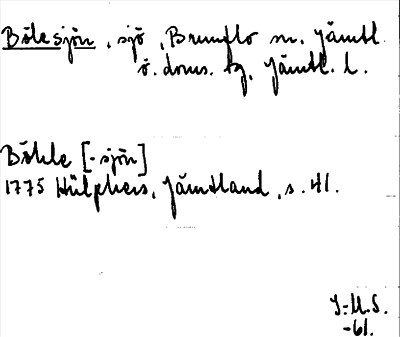 Bölesjön, sjö, Brunflo sn, Jämtl.
ö. doms. tg, Jämtl. l.
Böhle [-sjön]
1775 Hülphers, Jämtland, s. 41.
J:U.S.
-61.